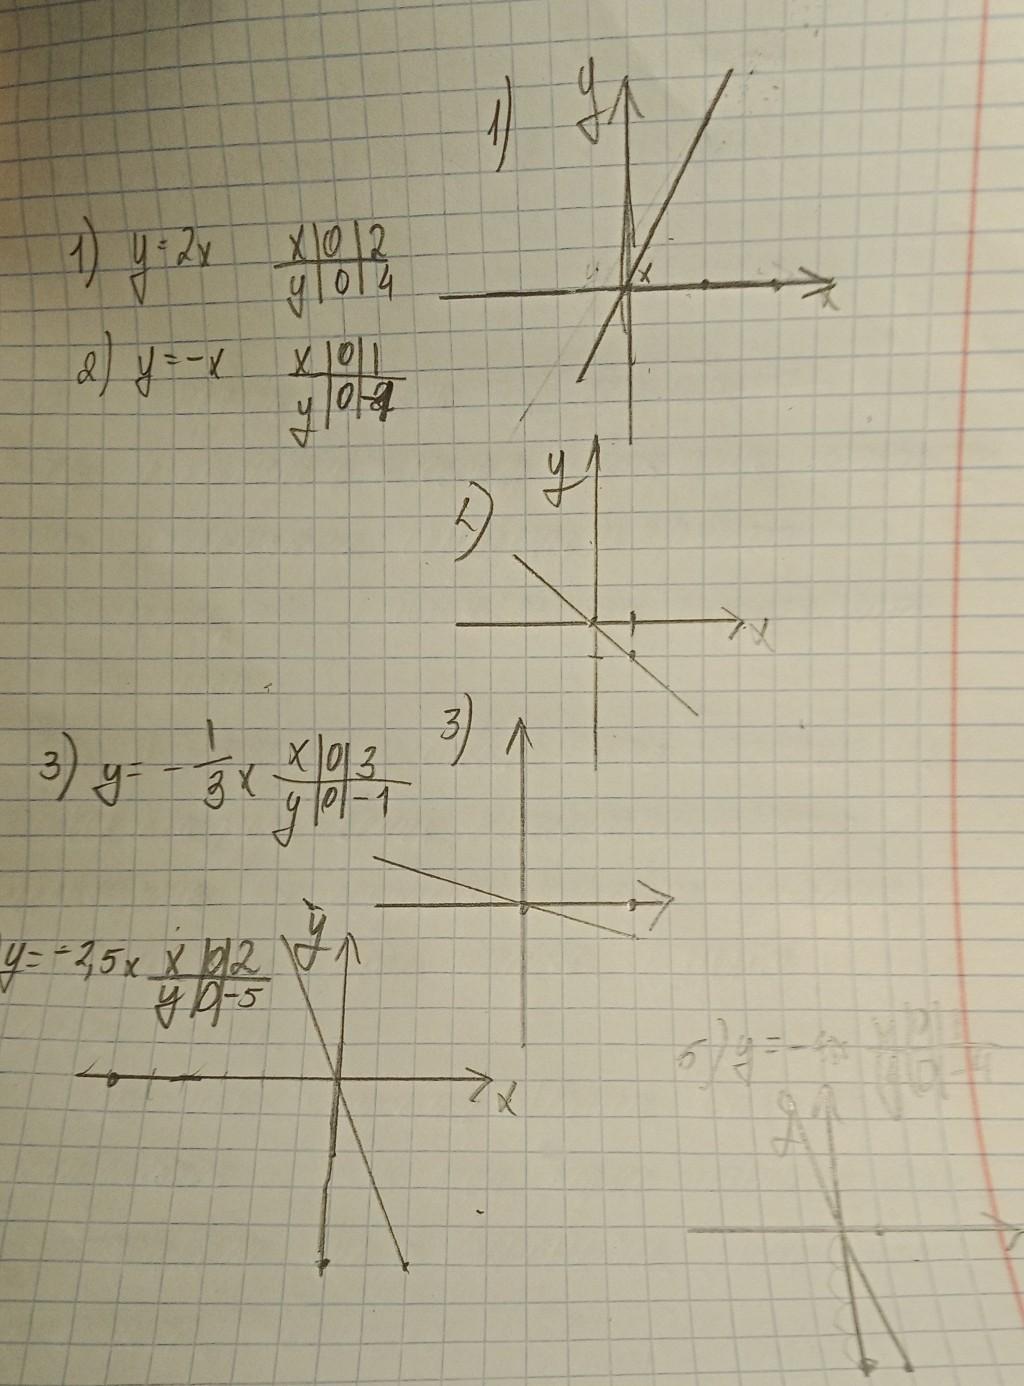 1)
y
1) y = 2x x | 0 | 2
y | 0 | 4
x
x
2) y = -x x | 0 | 1
y | 0 |
y
2)
x
3)
3) y = - 1/3 x x | 0 | 3
y | 0 | -1
y
y = -2,5x x | 0 | 2
y | 0 | -5
x
5) y = -4x
y | 0 | -4
y